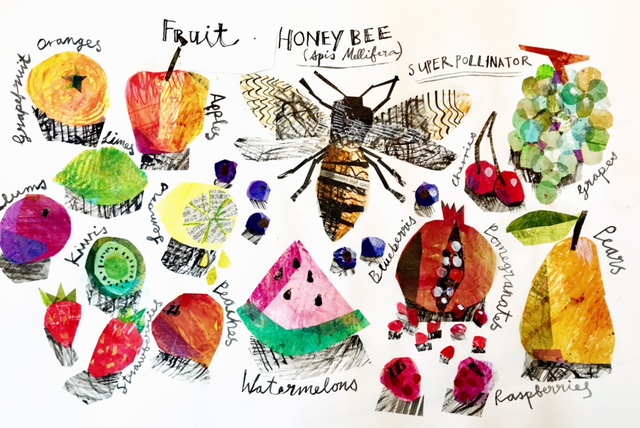 Fruit.
HONEY BEE
(apis Mellifera)
SUPERPOLLINATOR
Oranges
Grapefruit
Apples
Limes
Cherries
grapes
lums
Lemons
Kiwis
Blueberries
Pomegranates
Pears
Peaches
Strawberries
Watermelons
Raspberries